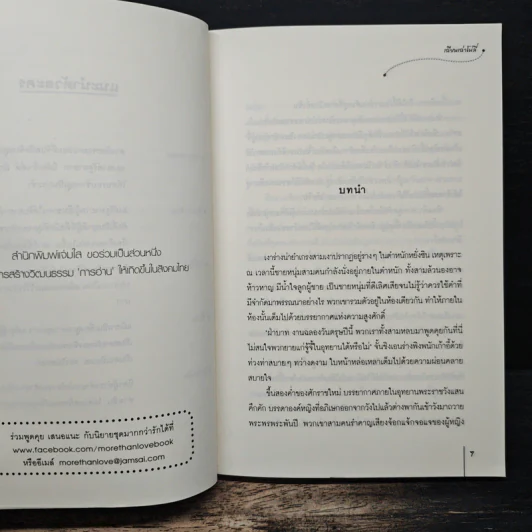 สำนักพิมพ์แจ่มใส ขอร่วมเป็นส่วนหนึ่ง
การสร้างวัฒนธรรม 'การอ่าน' ให้เกิดขึ้นในสังคมไทย
ร่วมพูดคุย เสนอแนะ กับนิยายชุดมากกว่ารักได้ที่
www.facebook.com/morethanlovebook
หรืออีเมล์ morethanlove@jamsai.com
บทนำ
เงาร่างน่ายำเกรงสามเงาปรากฏอยู่รางๆ ในตำหนักหยั่งซิน เหตุเพราะ
ณ เวลานี้ชายหนุ่มสามคนกำลังนั่งอยู่ภายในตำหนัก ทั้งสามล้วนองอาจ
ห้าวหาญ มีน้ำใจลูกผู้ชาย เป็นชายหนุ่มที่ดีเลิศเสียจนไม่รู้ว่าควรใช้คำที่
มีจำกัดมาพรรณนาอย่างไร พวกเขารวมตัวอยู่ในห้องเดียวกัน ทำให้ภายใน
ห้องนั้นเต็มไปด้วยบรรยากาศแห่งความสูงศักดิ์
'ฝ่าบาท งานฉลองวันตรุษปีนี้ พวกเราทั้งสามหลบมาพูดคุยกันที่นี่
ไม่สนใจพวกยายแก่จู้จี้ในอุทยานได้หรือไม่' จั้นชิงเอนร่างพิงพนักเก้าอี้ด้วย
ท่วงท่าสบายๆ ทว่างดงาม ใบหน้าหล่อเหลาเต็มไปด้วยความผ่อนคลาย
สบายใจ
ขึ้นสองค่ำของศักราชใหม่ บรรยากาศภายในอุทยานพระราชวังแสน
คึกคัก บรรดาองค์หญิงที่อภิเษกออกจากวังไปแล้วต่างพากันเข้าวังมาถวาย
พระพรพระพันปี พวกเขาสามคนรำคาญเสียงจ้อกแจ้กจอแจของผู้หญิง
7